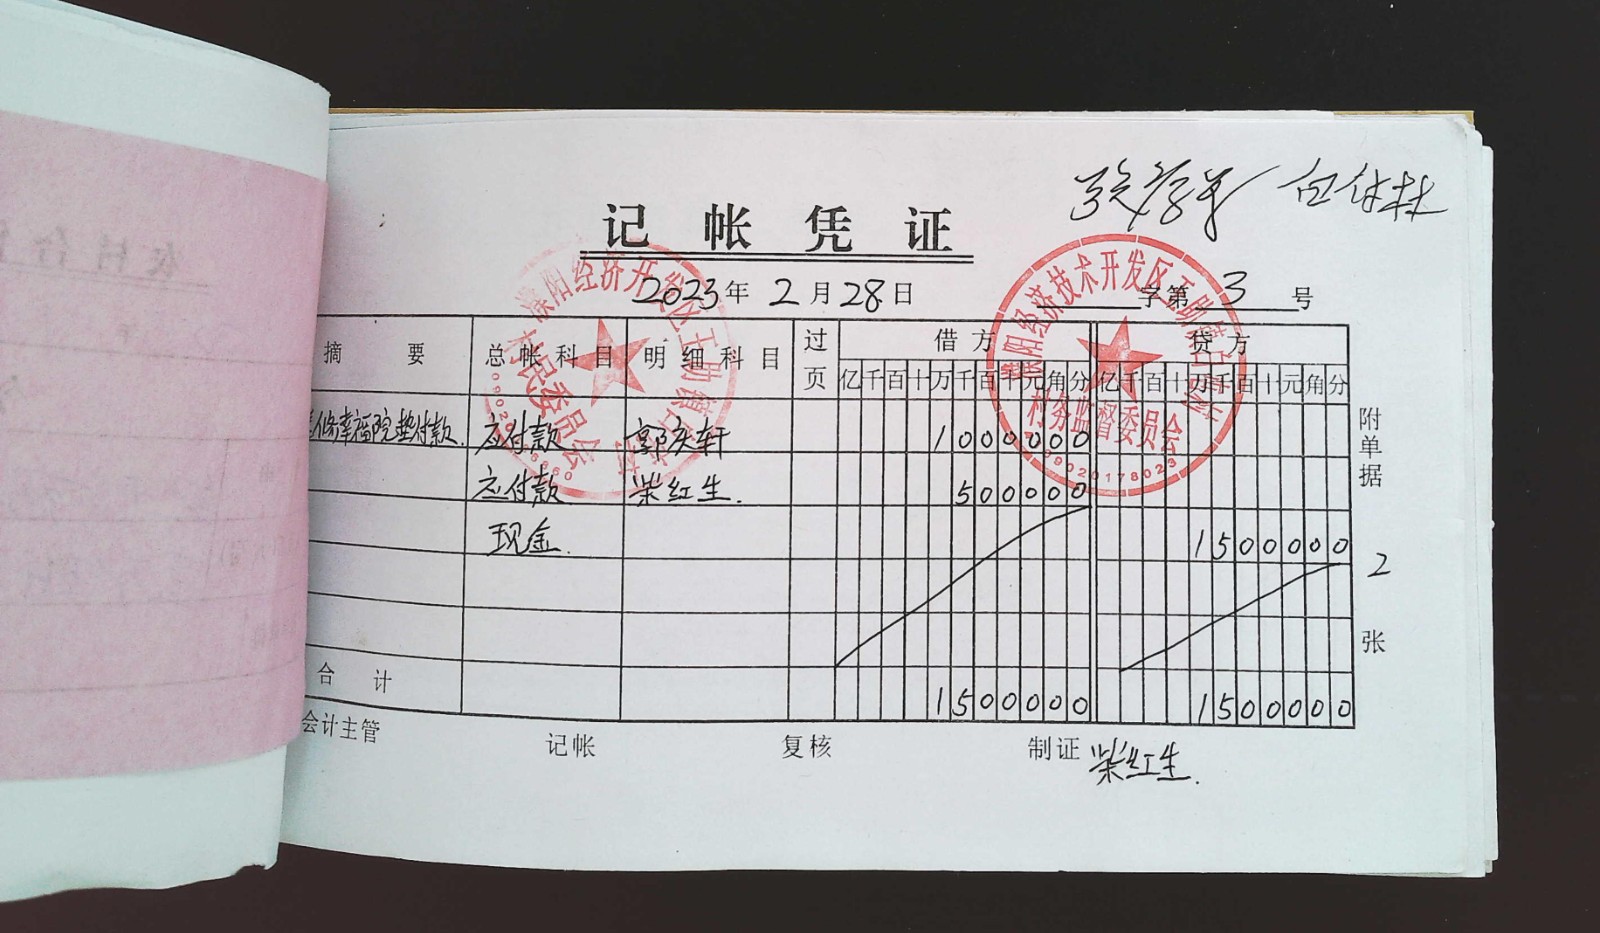 白付林
记帐凭证
2023年 2月28日 字第 3 号
摘要 总帐科目 明细科目 过页 借方 贷方
亿千百十万千百十元角分 亿千百十万千百十元角分
修幸福院垫付款 应付款 郭庆轩 1000000
应付款 柴红生. 500000
现金. 1500000
合计 1500000 1500000
附单据 2 张
会计主管 记帐 复核 制证 柴红生.
濮阳经济开发区王助镇
村民委员会
濮阳经济技术开发区王助镇
村务监督委员会